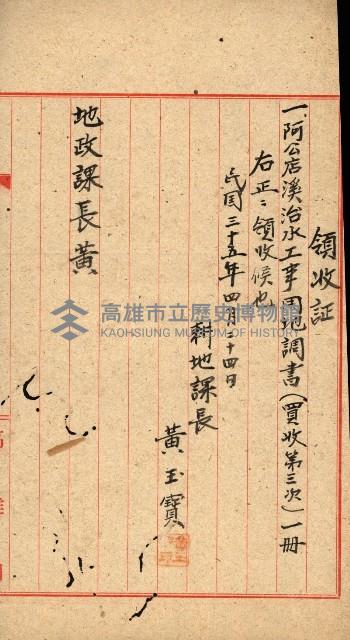 領收証
一、阿公店溪治水工事用地調書(買收第三次)一冊
右正ニ領收候也
民国三十五年四月二十四日
耕地課長
黃玉寶
地政課長黃
高雄市立歷史博物館
KAOHSIUNG MUSEUM OF HISTORY